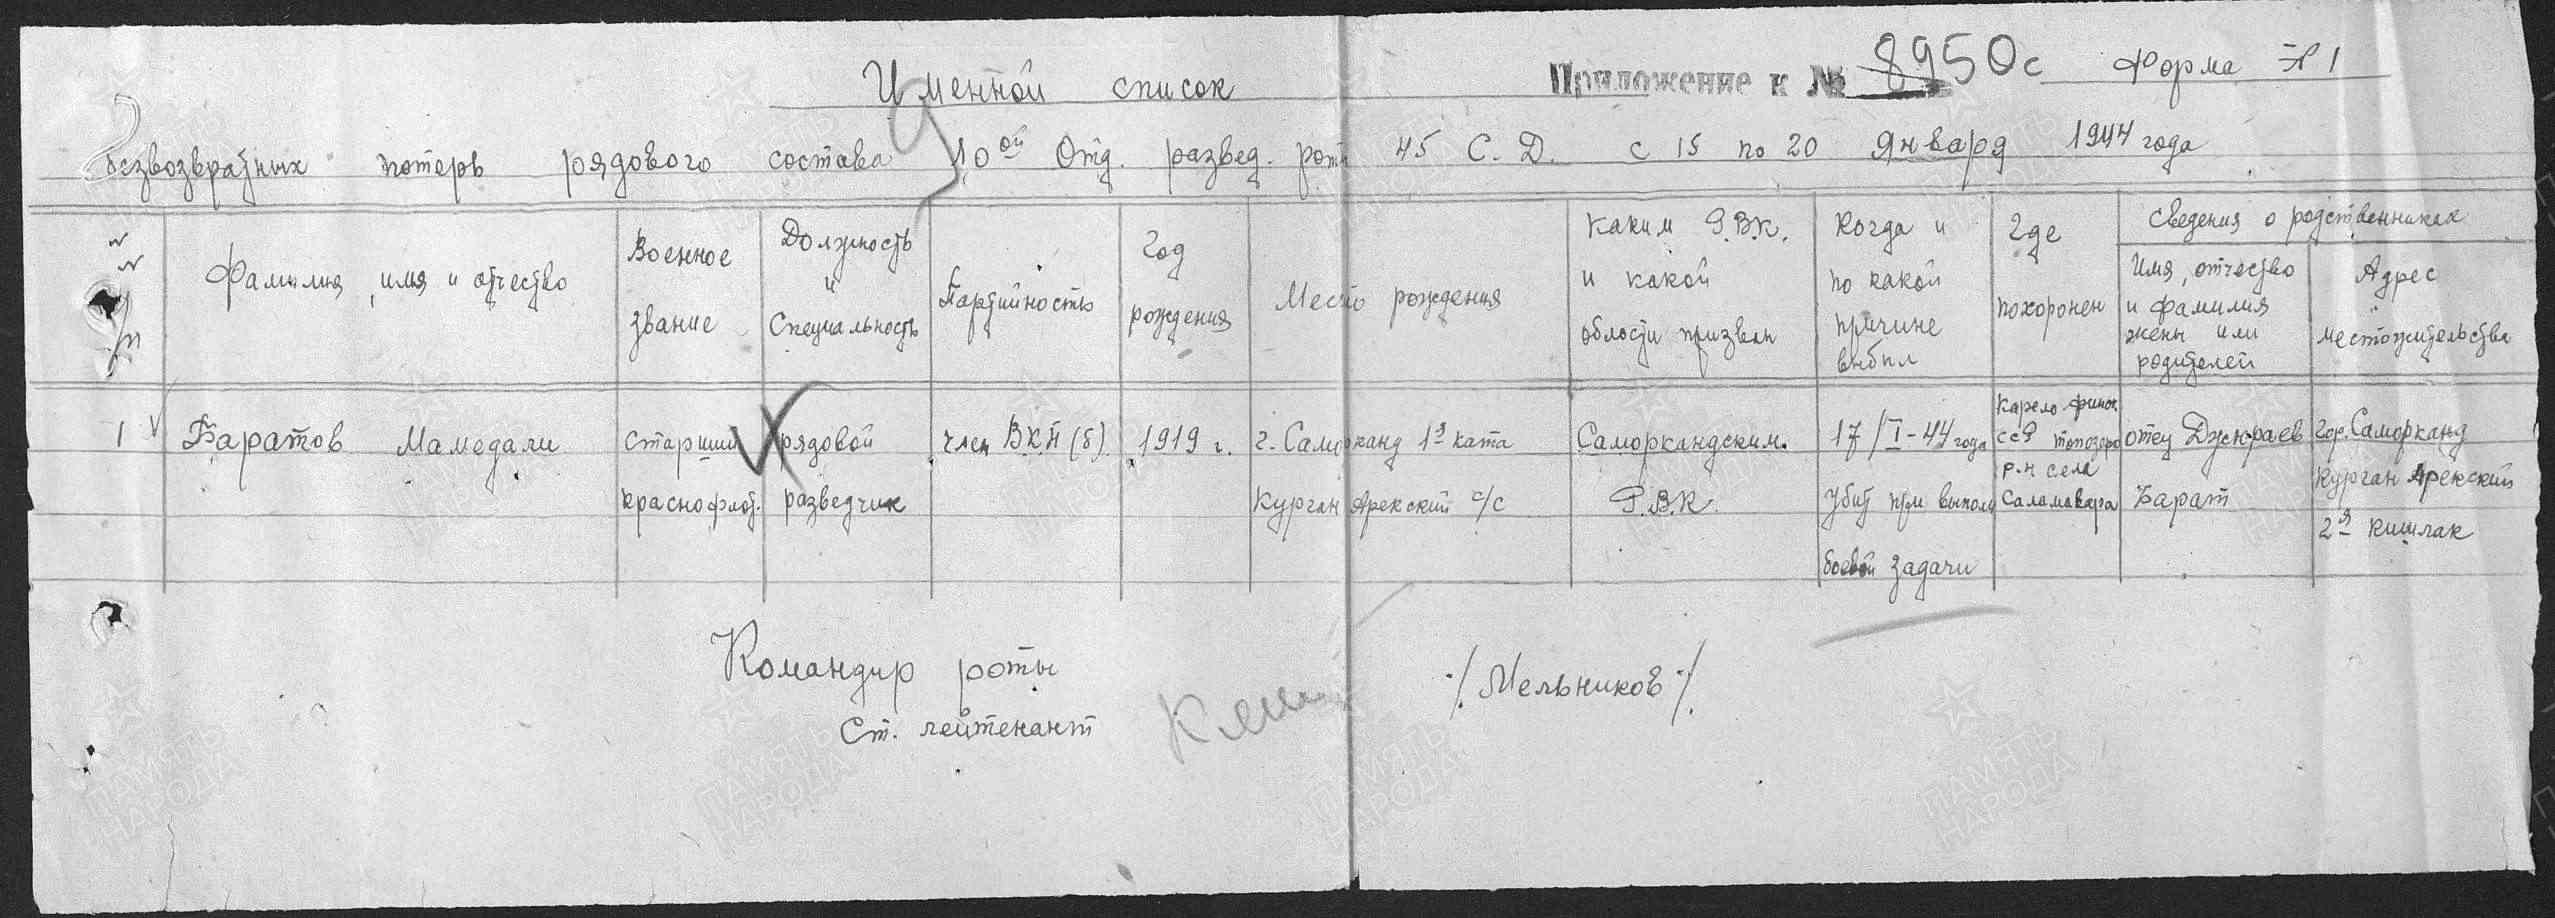 Именной список
Приложение к № 8950с Форма № 1
безвозвратных потерь рядового состава 10ой Отд. развед. роты 45 С.Д. с 15 по 20 января 1944 года
№№ п/п
Фамилия, имя и отчество
Военное звание
Должность и специальность
Партийность
Год рождения
Место рождения
Каким Р.В.К. и какой области призван
Когда и по какой причине выбыл
Где похоронен
Сведения о родственниках
Имя, отчество и фамилия жены или родителей
Адрес местожительства
1
Баратов Мамедали
Старший
краснофлот.
рядовой
разведчик
член ВКП(б)
1919 г.
г. Саморканд 1я ката
Курган Арекский с/с
Саморкандским
Р.В.К.
17/I-44 года
Убит при выполн
боевой задачи
Карело финск.
ССР
р-н села
Саламавара
отец Джураев
Барат
гор. Саморканд
Курган Арекский
2я кишлак
Командир роты
Ст. лейтенант
/Мельников/
ПАМЯТЬ
НАРОДА